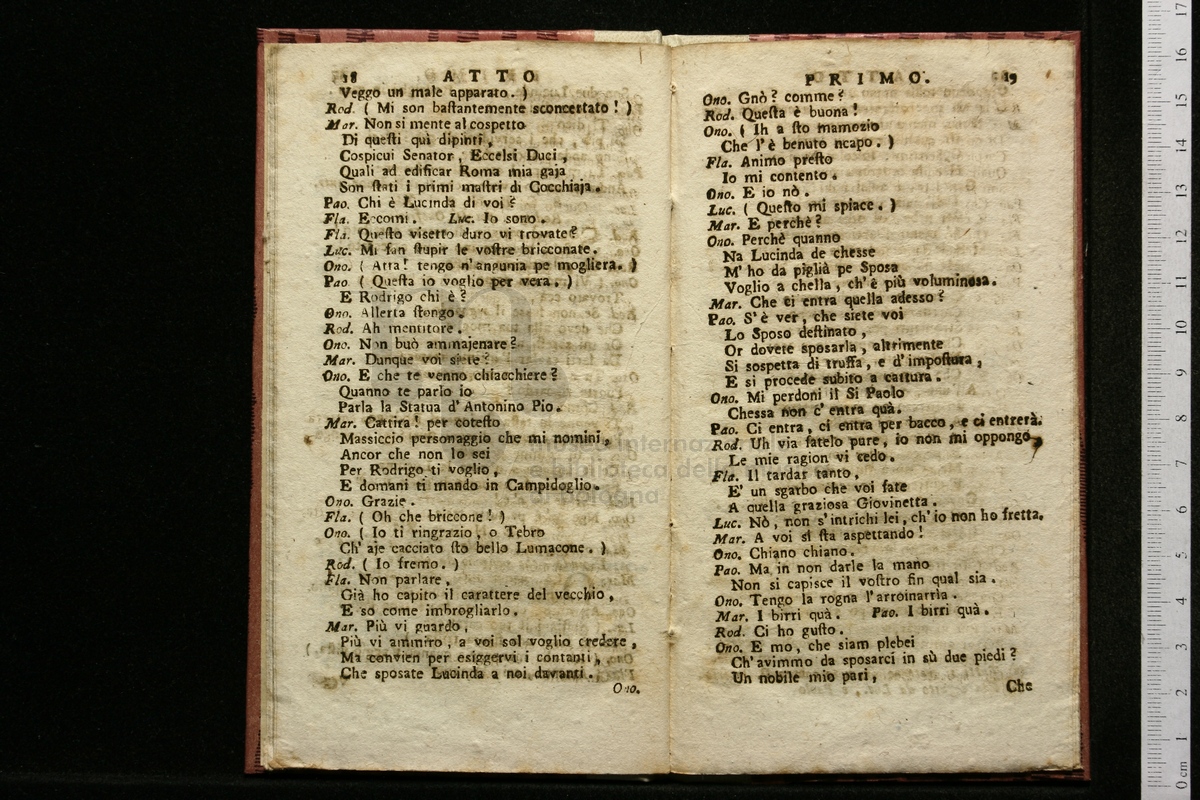 18 ATTO
Veggo un male apparato. )
Rod. ( Mi son baſtantemente sconcertato ! )
Mar. Non si mente al cospetto
Di queſti quì dipinti,
Cospicui Senator, Eccelsi Duci,
Quali ad edificar Roma mia gaja
Son ſtati i primi maſtri di Cocchiaja.
Pao. Chi è Lucinda di voi?
Fla. Eccomi. Luc. Io sono.
Fla. Queſto visetto duro vi trovate?
Luc. Mi fan ſtupir le voſtre bricconate.
Ono. ( Atta! tengo n'angunia pe mogliera. )
Pao. ( Queſta io voglio per vera. )
E Rodrigo chi è?
Ono. Allerta ſtongo.
Rod. Ah mentitore.
Ono. Non buò ammajenare?
Mar. Dunque voi siete?
Ono. E che te venno chiacchiere?
Quanno te parlo io
Parla la Statua d'Antonino Pio.
Mar. Cattira! per coteſto
Massiccio personaggio che mi nomini,
Ancor che non lo sei
Per Rodrigo ti voglio,
E domani ti mando in Campidoglio.
Ono. Grazie.
Fla. ( Oh che briccone! )
Ono. ( Io ti ringrazio, o Tebro
Ch' aje cacciato ſto bello Lumacone. )
Rod. ( Io fremo. )
Fla. Non parlare,
Già ho capito il carattere del vecchio,
E so come imbrogliarlo.
Mar. Più vi guardo,
Più vi ammiro, a voi sol voglio credere,
Ma convien per esiggervi i contanti,
Che sposate Lucinda a noi davanti.
Ono.
PRIMO. 19
Ono. Gnò? comme?
Rod. Queſta è buona!
Ono. ( Ih a ſto mamozio
Che l'è benuto ncapo. )
Fla. Animo preſto
Io mi contento.
Ono. E io nò.
Luc. ( Queſto mi spiace. )
Mar. E perchè?
Ono. Perchè quanno
Na Lucinda de chesse
M' ho da piglià pe Sposa
Voglio a chella, ch'è più voluminosa.
Mar. Che ci entra quella adesso?
Pao. S'è ver, che siete voi
Lo Sposo deſtinato,
Or dovete sposarla, altrimente
Si sospetta di truffa, e d'impoſtura,
E si procede subito a cattura.
Ono. Mi perdoni il Si Paolo
Chessa non c'entra quà.
Pao. Ci entra, ci entra per bacco, e ci entrerà.
Rod. Uh via fatelo pure, io non mi oppongo,
Le mie ragion vi cedo.
Fla. Il tardar tanto,
E' un sgarbo che voi fate
A quella graziosa Giovinetta.
Luc. Nò, non s'intrichi lei, ch'io non ho fretta.
Mar. A voi si ſta aspettando!
Ono. Chiano chiano.
Pao. Ma in non darle la mano
Non si capisce il voſtro fin qual sia.
Ono. Tengo la rogna l'arroinarria.
Mar. I birri quà. Pao. I birri quà.
Rod. Ci ho guſto.
Ono. E mo, che siam plebei
Ch'avimmo da sposarci in sù due piedi?
Un nobile mio pari,
Che